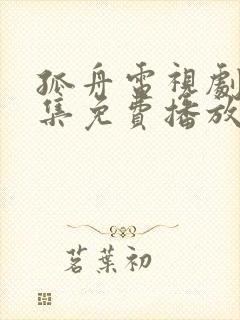 孤舟電視劇
集免費播放
茗葉初